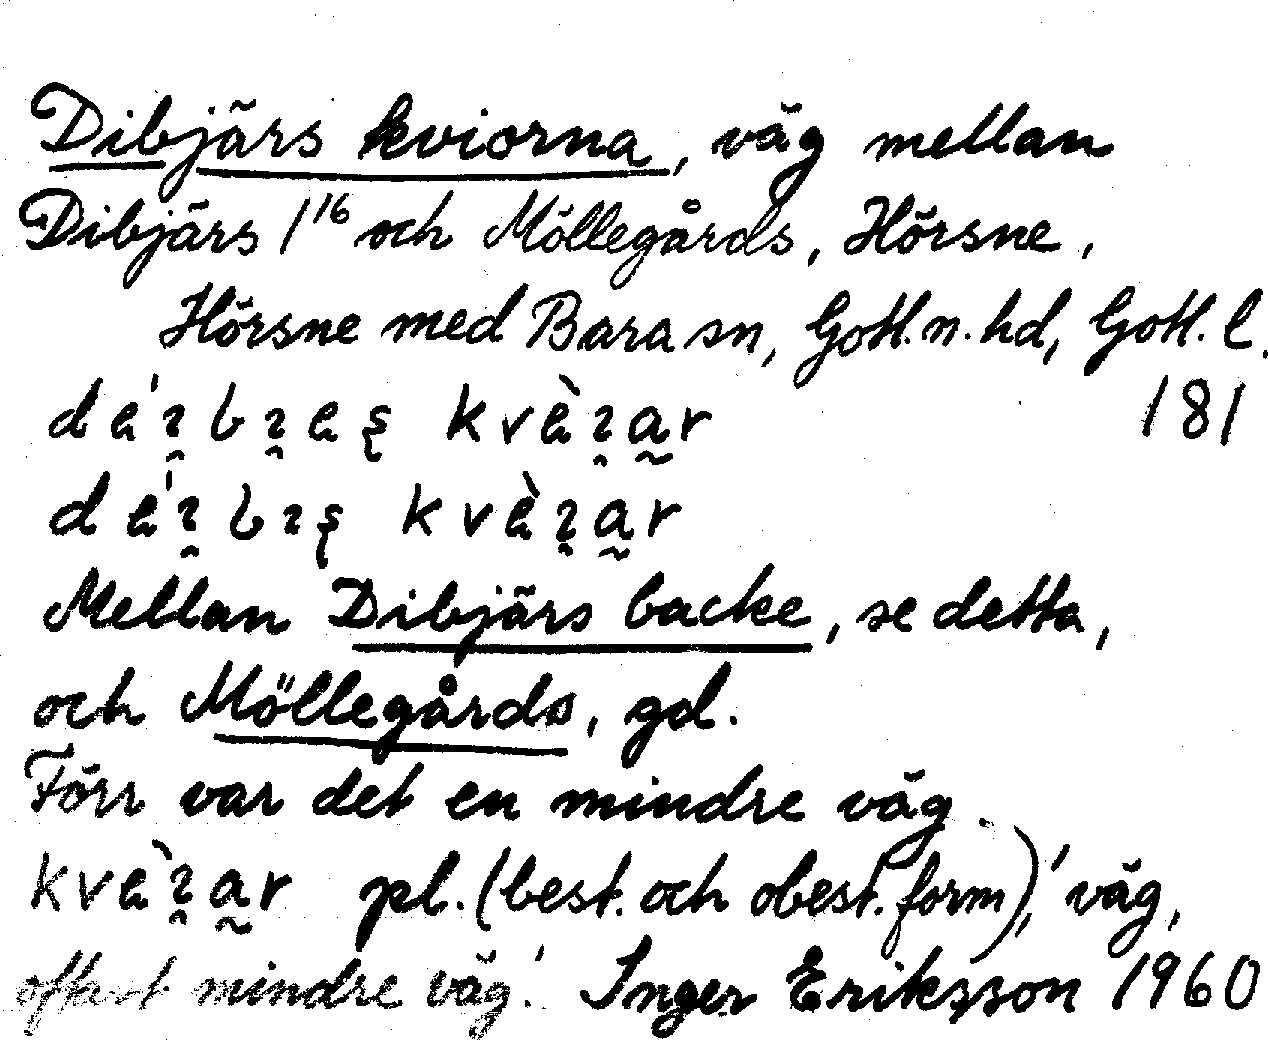 Dibjärs kviorna, väg mellan
Dibjärs 1¹⁶ och Möllegårds, Hörsne,
Hörsne med Bara sn, Gotl. n. hd, Gotl. l.
181
Mellan Dibjärs backe, se detta,
och Möllegårds, gd.
Förr var det en mindre väg.
pl. (best. och obest. form), 'väg,
oftast mindre väg'. Inger Eriksson 1960